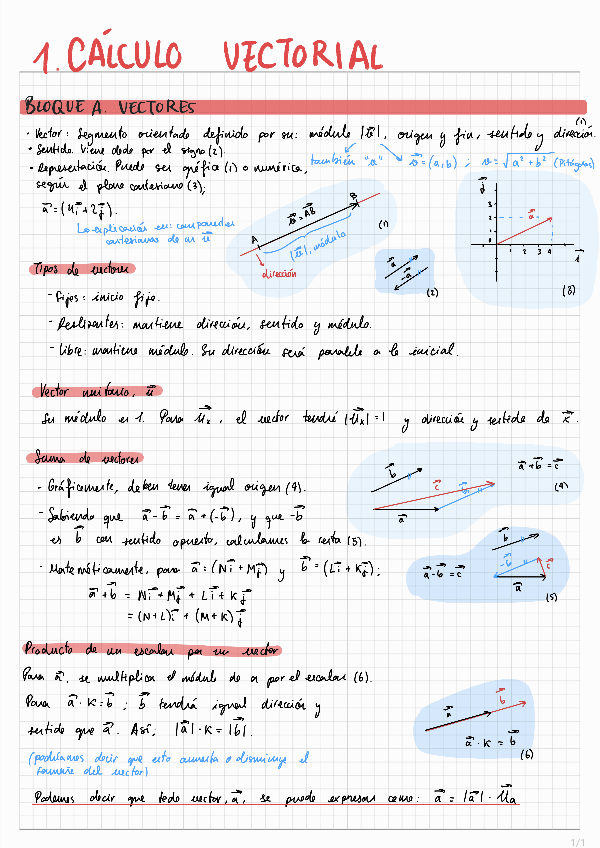 1. CÁLCULO VECTORIAL
BLOQUE A. VECTORES
· Vector: Segmento orientado definido por su: módulo |v⃗|, origen y fin, sentido y dirección.
(1)
· Sentido. Viene dado por el signo (2).
· Representación. Puede ser gráfica (1) o numérica,
según el plano cartesiano (3);
también "a"
v⃗ = (a,b) ; v = √(a² + b²) (Pitágoras)
a⃗ = (4i⃗ + 2j⃗).
Lo explicación en: componentes
cartesianas de un v⃗
A
B
v⃗ = AB
|v⃗|, módulo
dirección
(1)
a⃗
-a⃗
(2)
j⃗
3
2
1
0
1 2 3 4
a⃗
i⃗
(3)
Tipos de vectores
- Fijos: inicio fijo.
- Deslizantes: mantiene dirección, sentido y módulo.
- Libre: mantiene módulo. Su dirección será paralela a la inicial.
Vector unitario, u⃗
Su módulo es 1. Para u⃗x, el vector tendrá |u⃗x| = 1 y dirección y sentido de x⃗.
Suma de vectores
- Gráficamente, deben tener igual origen (4).
- Sabiendo que a⃗ - b⃗ = a⃗ + (-b⃗), y que -b⃗
es b⃗ con sentido opuesto, calculamos la resta (5).
· Matemáticamente, para a⃗ = (Ni⃗ + Mj⃗) y b⃗ = (Li⃗ + Kj⃗);
a⃗ + b⃗ = Ni⃗ + Mj⃗ + Li⃗ + Kj⃗
= (N+L)i⃗ + (M+K)j⃗
b⃗
c⃗
b⃗
a⃗
a⃗ + b⃗ = c⃗
(4)
b⃗
-b⃗
c⃗
a⃗
a⃗ - b⃗ = c⃗
(5)
Producto de un escalar por un vector
Para a⃗, se multiplica el módulo de a por el escalar (6).
Para a⃗ · K = b⃗ ; b⃗ tendrá igual dirección y
sentido que a⃗. Así, |a⃗| · K = |b⃗|.
(podríamos decir que esto aumenta o disminuye el
tamaño del vector)
a⃗
b⃗
a⃗ · K = b⃗
(6)
Podemos decir que todo vector, a⃗, se puede expresar como: a⃗ = |a⃗| · u⃗a
1/1